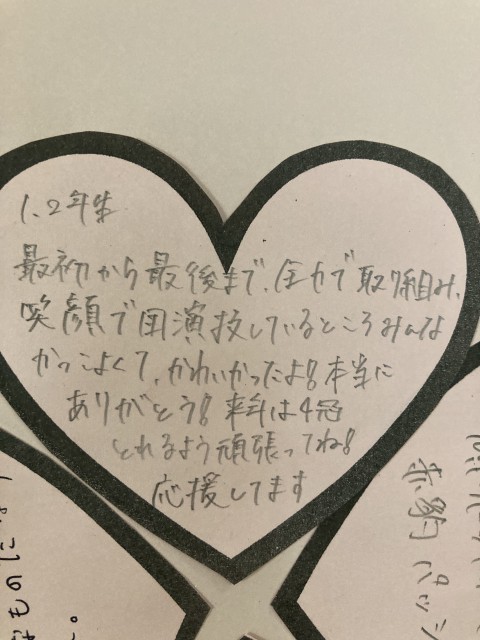 1、2年生
最初から最後まで、全力で取り組み、
笑顔で団演技しているところみんな
かっこよくて、かわいかったよ！本当に
ありがとう！来年は4冠
とれるよう頑張ってね！
応援してます
ものに